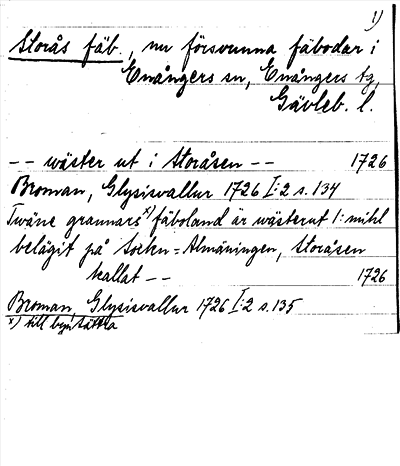 1)
Storås fäb., nu försvunna fäbodar i
Enångers sn, Enångers tg,
Gävleb. l.
-- wäster ut i Storåsen -- 1726
Broman, Glysisvallur 1726 I:2 s. 134
Twäne grannars x) fäboland är wästerut 1: mihl
belägit på Sockn=Almäningen, Storåsen
kallat -- 1726
Broman, Glysisvallur 1726 I:2 s. 135
x) till byn Sättla